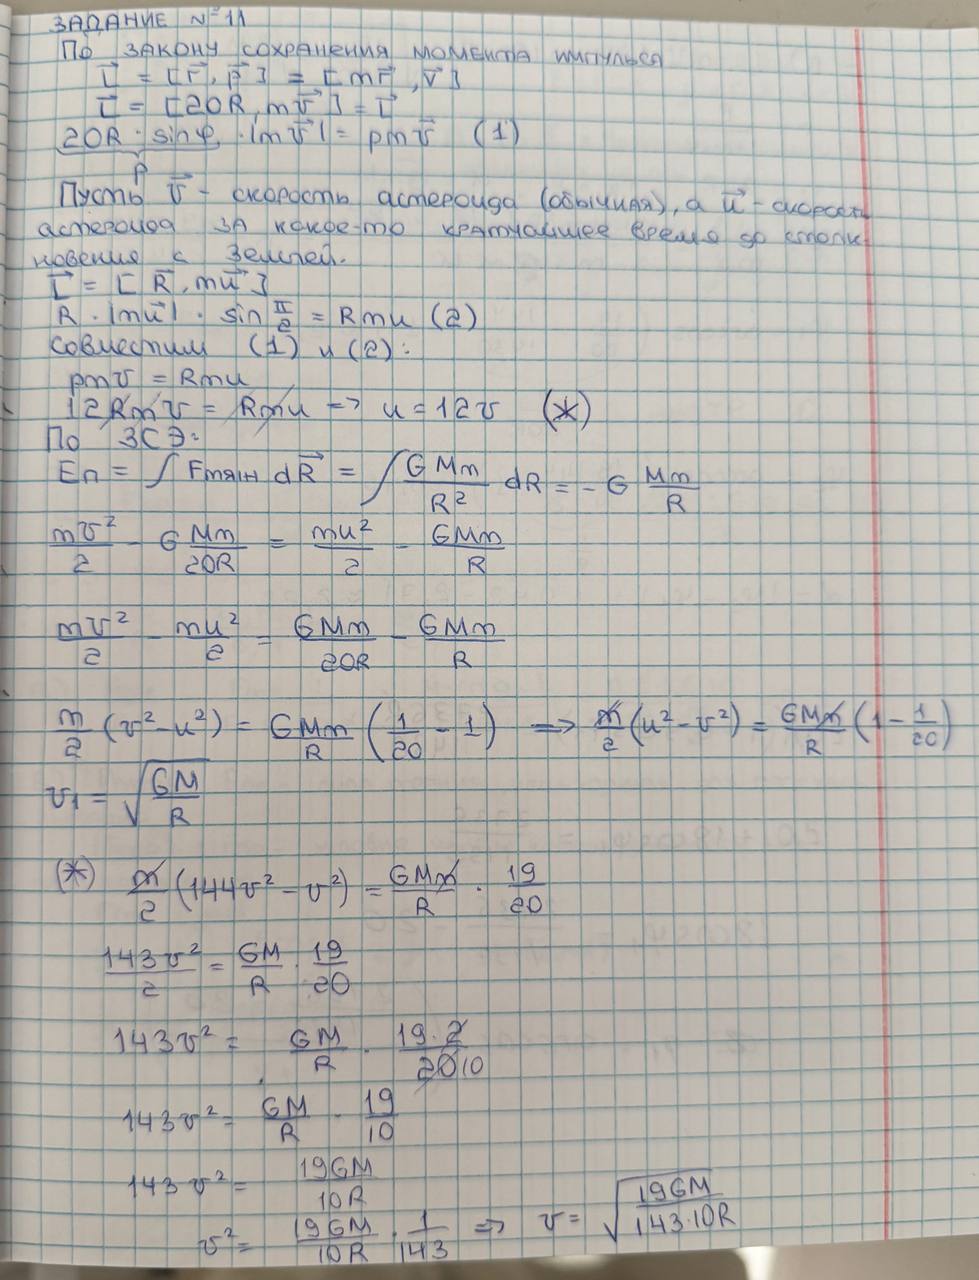 ЗАДАНИЕ №11
По закону сохранения момента импульса
L⃗ = [r⃗, p⃗] = [mr⃗, v⃗]
L⃗ = [20R, mv⃗] = L⃗
20R · sinφ · |mv⃗| = pmv⃗ (1)
p
Пусть v⃗ - скорость астероида (обычная), а u⃗ - скорость
астероида за какое-то кратчайшее время до столк
новения с Землей.
L⃗ = [R⃗, mu⃗]
R · |mu⃗| · sin π/2 = Rmu (2)
совместим (1) и (2):
pmv = Rmu
12Rmv = Rmu => u = 12v (*)
По ЗСЭ:
Eп = ∫ Fтян dR⃗ = ∫ GMm/R² dR = - G Mm/R
mv²/2 - G Mm/20R = mu²/2 - GMm/R
mv²/2 - mu²/2 = GMm/20R - GMm/R
m/2 (v² - u²) = GMm/R (1/20 - 1) => m/2 (u² - v²) = GMm/R (1 - 1/20)
v₁ = √(GM/R)
(*) m/2 (144v² - v²) = GMm/R · 19/20
143v²/2 = GM/R · 19/20
143v² = GM/R · 19·2/20 10
143v² = GM/R · 19/10
143v² = 19GM/10R
v² = 19GM/10R · 1/143 => v = √(19GM/143·10R)